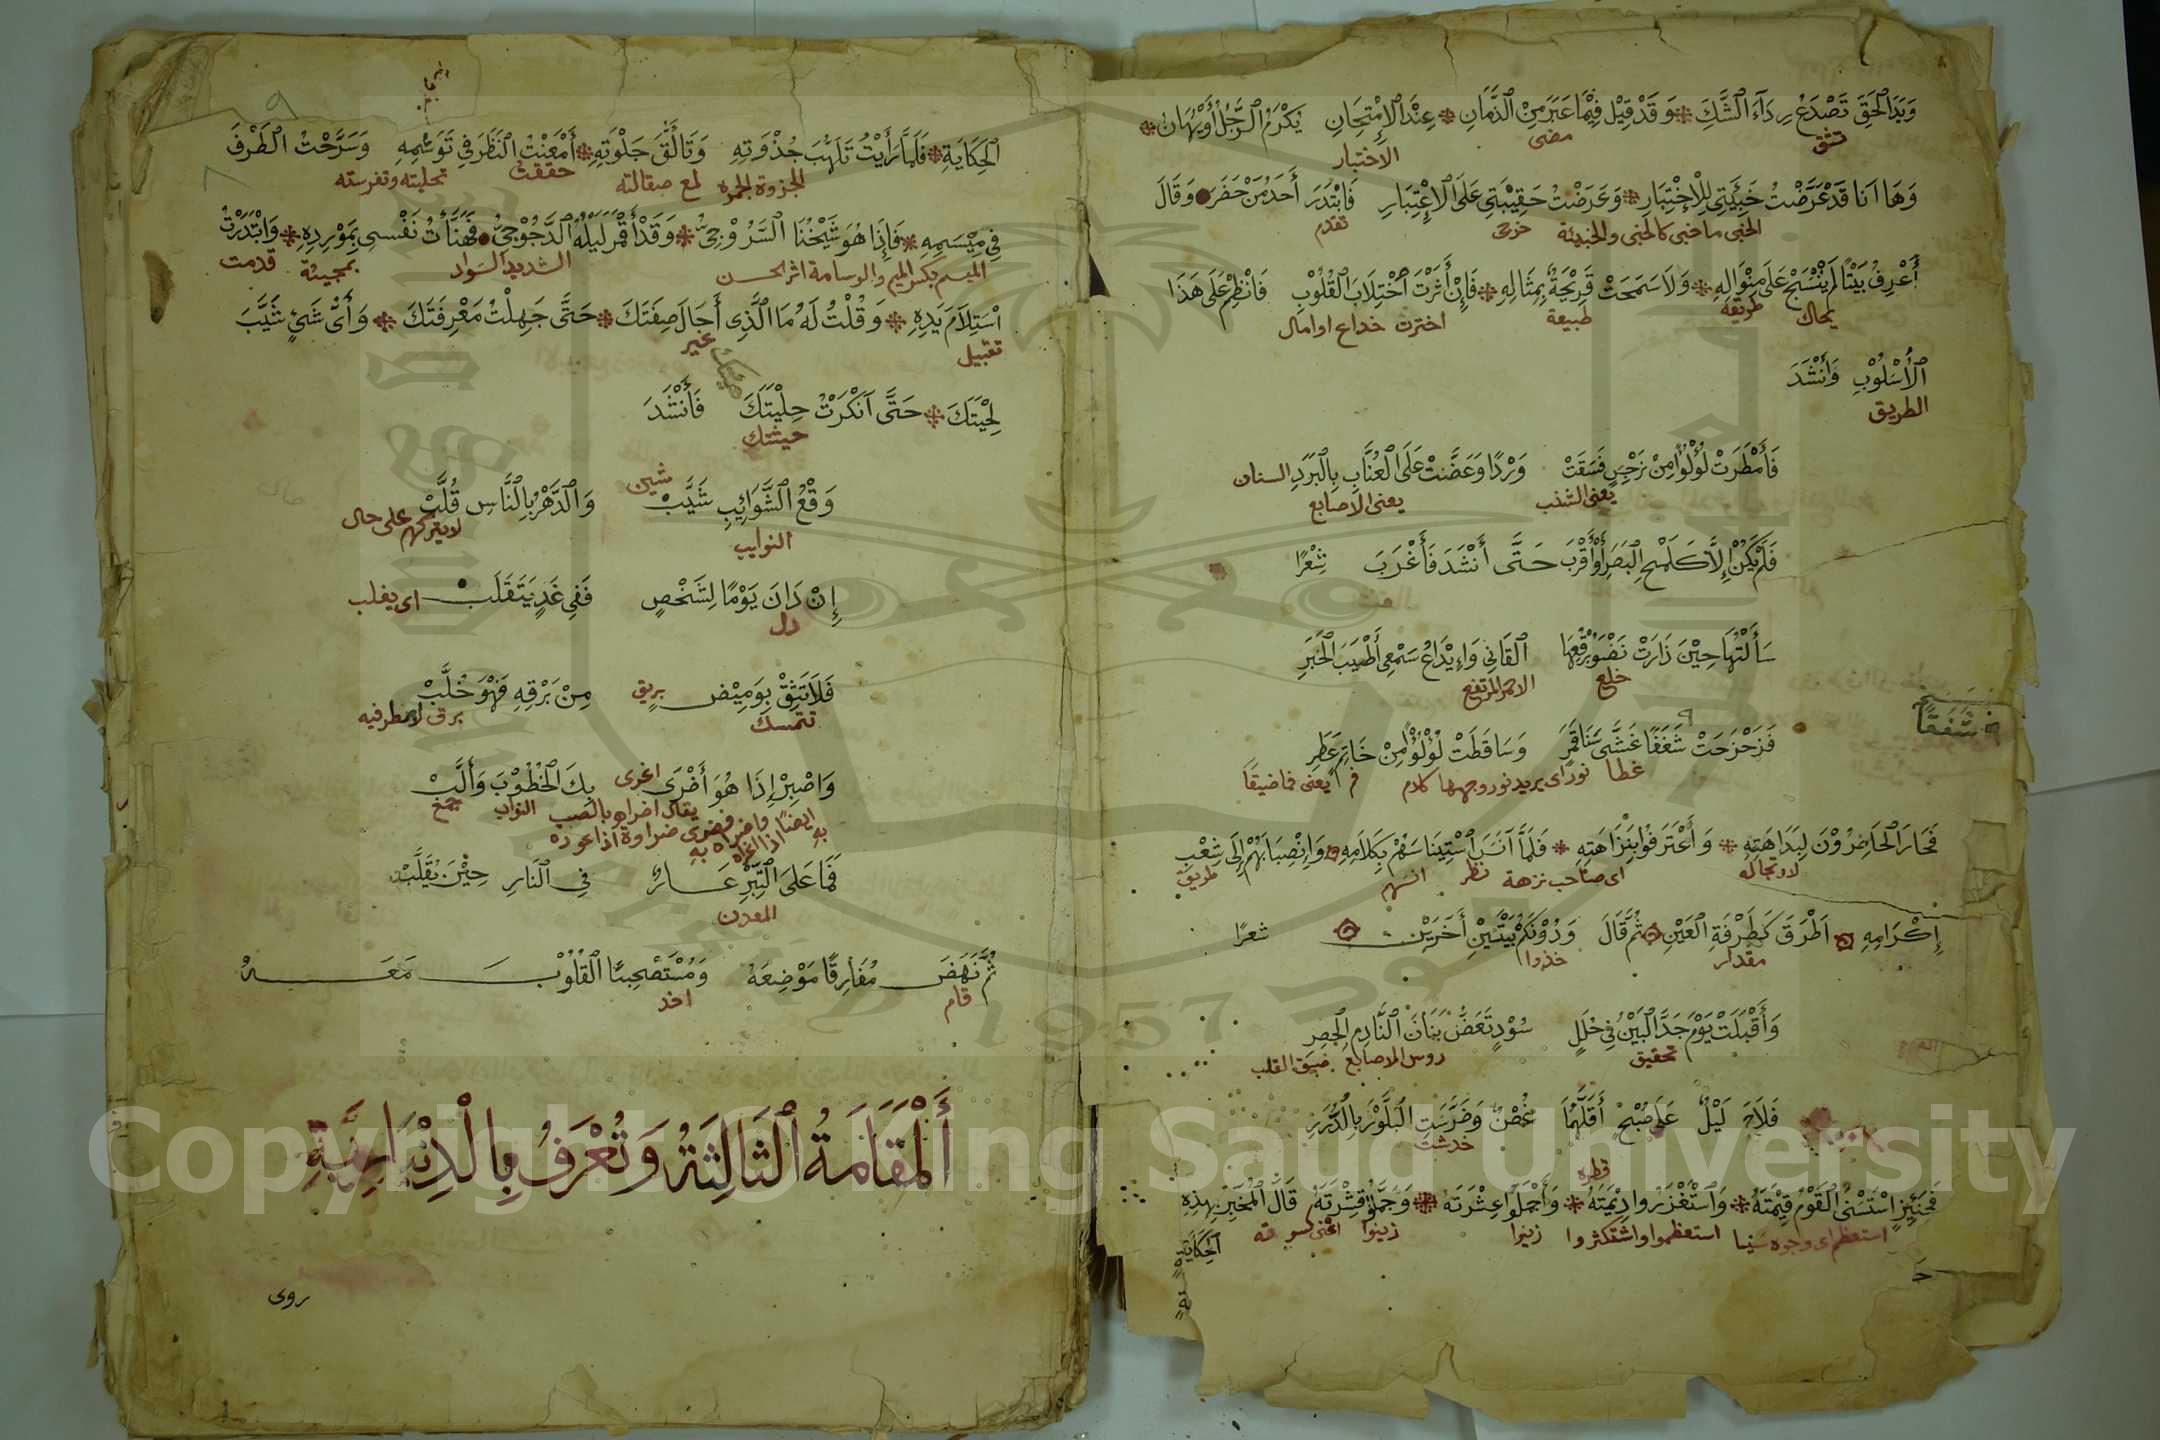 وَيَدَ الْحَقِّ تَصْدَعُ رِدَآءَ الشَّكِّ ❋ وَقَدْ قِيْلَ فِيْمَا غَبَرَ مِنَ الزَّمَانِ ❋ عِنْدَ الْاِمْتِحَانِ يُكْرَمُ الرَّجُلُ أَوْ يُهَانُ ❋
تشق مضى الاختبار
وَهَا اَنَا قَدْ عَرَّضْتُ خَبِيْئَتِى لِلْاِخْتِبَارِ ❋ وَعَرَضْتُ حَقِيْبَتِى عَلَى الْاِعْتِبَارِ فَابْتَدَرَ أَحَدُ مَنْ حَضَرَ وَقَالَ
الخبى ما خبى كالخبى والخبيئة خرجى تقدم
أَعْرِفُ بَيْتًا لَمْ يُنْسَجْ عَلَى مِنْوَالِهِ ❋ وَلَا سَمَحَتْ قَرِيْحَةٌ بِمِثَالِهِ ❋ فَاِنْ أَثَرْتَ اخْتِلَابَ الْقُلُوْبِ فَانْظِمْ عَلَى هَذَا
يحاك طريقه طبيعة اخترت خداع او امال
الْأُسْلُوْبِ وَأَنْشَدَ
الطريق
فَأَمْطَرَتْ لُؤْلُؤًا مِنْ نَرْجِسٍ فَسَقَتْ وَرْدًا وَعَضَّتْ عَلَى الْعُنَّابِ بِالْبَرَدِ السنان
يعنى الاصابع
فَلَمْ يَكُنْ إِلَّا كَلَمْحِ الْبَصَرِ أَوْ أَقْرَبَ حَتَّى أَنْشَدَ فَأَغْرَبَ شِعْرًا
سَأَلْتُهَا حِيْنَ زَارَتْ نَضْوَ بُرْقُعِهَا الْقَانِى وَاِيْدَاعَ سَمْعِى أَطْيَبَ الْخَبَرِ
خلع
فَزَحْزَحَتْ شَفَقًا غَشَّى سَنَا قَمَرٍ وَسَاقَطَتْ لُؤْلُؤًا مِنْ خَاتِمٍ عَطِرِ
شَفَقًا
غطا نور اى يريد نور وجهها كلام فم يعنى فما ضيقا
فَحَارَ الْحَاضِرُوْنَ لِبَدَاهَتِهِ ❋ وَاعْتَرَفُوْا بِنَزَاهَتِهِ ❋ فَلَمَّا آنَسَ اسْتِينَاسَهُمْ بِكَلَامِهِ وَانْصِبَابَهُمْ إِلَى شِعْبِ
اى صاحب نزهة نظر انسهم طريق
إِكْرَامِهِ اَطْرَقَ كَطَرْفَةِ الْعَيْنِ ثُمَّ قَالَ وَدُوْنَكُمْ بَيْتَيْنِ أَخَرَيْنِ شعرًا
مقدار خذوا
وَأَقْبَلَتْ يَوْمَ جَدَّ الْبَيْنُ فِى حُلَلٍ سُوْدٍ تَعَضُّ بَنَانَ النَّادِمِ الْحَصِرِ
تحقيق روس الاصابع ضيق القلب
فَلَاحَ لَيْلٌ عَلَى صُبْحٍ أَقَلَّهُمَا غُصْنٌ وَضَرَّسَتِ الْبُلَّوْرَ بِالدُّرَرِ
خدشت قطره
فَحِيْنَئِذٍ اسْتَسْنَى الْقَوْمُ قِيْمَتَهُ ❋ وَاسْتَغْزَرُوا دِيْمَتَهُ ❋ وَأَجْمَلُوْا عِشْرَتَهُ ❋ وَجَمَّلُوْا قِشْرَتَهُ قَالَ الْمُخْبِرُ بِهَذِهِ
استعظموا واستكثروا زينوا زينوا
الْحِكَايَةِ
الْحِكَايَةِ ❋ فَلَمَّا رَأَيْتُ تَلَهُّبَ جُذْوَتِهِ وَتَأَلُّقَ جَلْوَتِهِ ❋ أَمْعَنْتُ النَّظَرَ فِى تَوَسُّمِهِ وَسَرَّحْتُ الطَّرْفَ
الجزوة الجمره لمع صقالته حققت تحليته وتفرسته
فِى مِيْسَمِهِ ❋ فَإِذَا هُوَ شَيْخُنَا السَّرُوْجِىُّ ❋ وَقَدْ أَقْمَرَ لَيْلُهُ الدَّجُوْجِىُّ فَهَنَّأْتُ نَفْسِى بِمَوْرِدِهِ ❋ وَابْتَدَرْتُ
الميسم بكسر الميم والوسامة اثر الحسن الشديد السواد بمجيئه قدمت
اسْتِلَامَ يَدِهِ ❋ وَقُلْتُ لَهُ مَا الَّذِى أَحَالَ صِفَتَكَ ❋ حَتَّى جَهِلْتُ مَعْرِفَتَكَ ❋ وَأَىُّ شَىْءٍ شَيَّبَ
تقبيل غير
لِحْيَتَكَ ❋ حَتَّى اَنْكَرْتُ حِلْيَتَكَ فَأَنْشَدَ
حيئتك
وَقْعُ الشَّوَائِبِ شَيَّبْ وَالدَّهْرُ بِالنَّاسِ قُلَّبْ
النوايب شين لا يتركهم على حال
إِنْ دَانَ يَوْمًا لِشَخْصٍ فَفِى غَدٍ يَتَقَلَّبْ اى يغلب
ذل
فَلَا تَثِقْ بِوَمِيْضٍ بريق مِنْ بَرْقِهِ فَهْوَ خُلَّبْ
تتمسك برق لا مطر فيه
وَاصْبِرْ إِذَا هُوَ أَضْرَى اغرى بِكَ الْخُطُوْبَ وَأَلَّبْ
يقال اضراه بالصيد النواب جمع
فَمَا عَلَى التِّبْرِ عَارٌ فِى النَّارِ حِيْنَ يُقَلَّبْ
المعدن
ثُمَّ نَهَضَ مُفَارِقًا مَوْضِعَهُ وَمُسْتَصْحِبًا الْقُلُوْبَ مَعَهُ
قام اخذ
أَلْمَقَامَةُ الثَّالِثَةُ وَتُعْرَفُ بِالْدِيْنَارِيَّةِ
روى
Copyright © King Saud University
1957